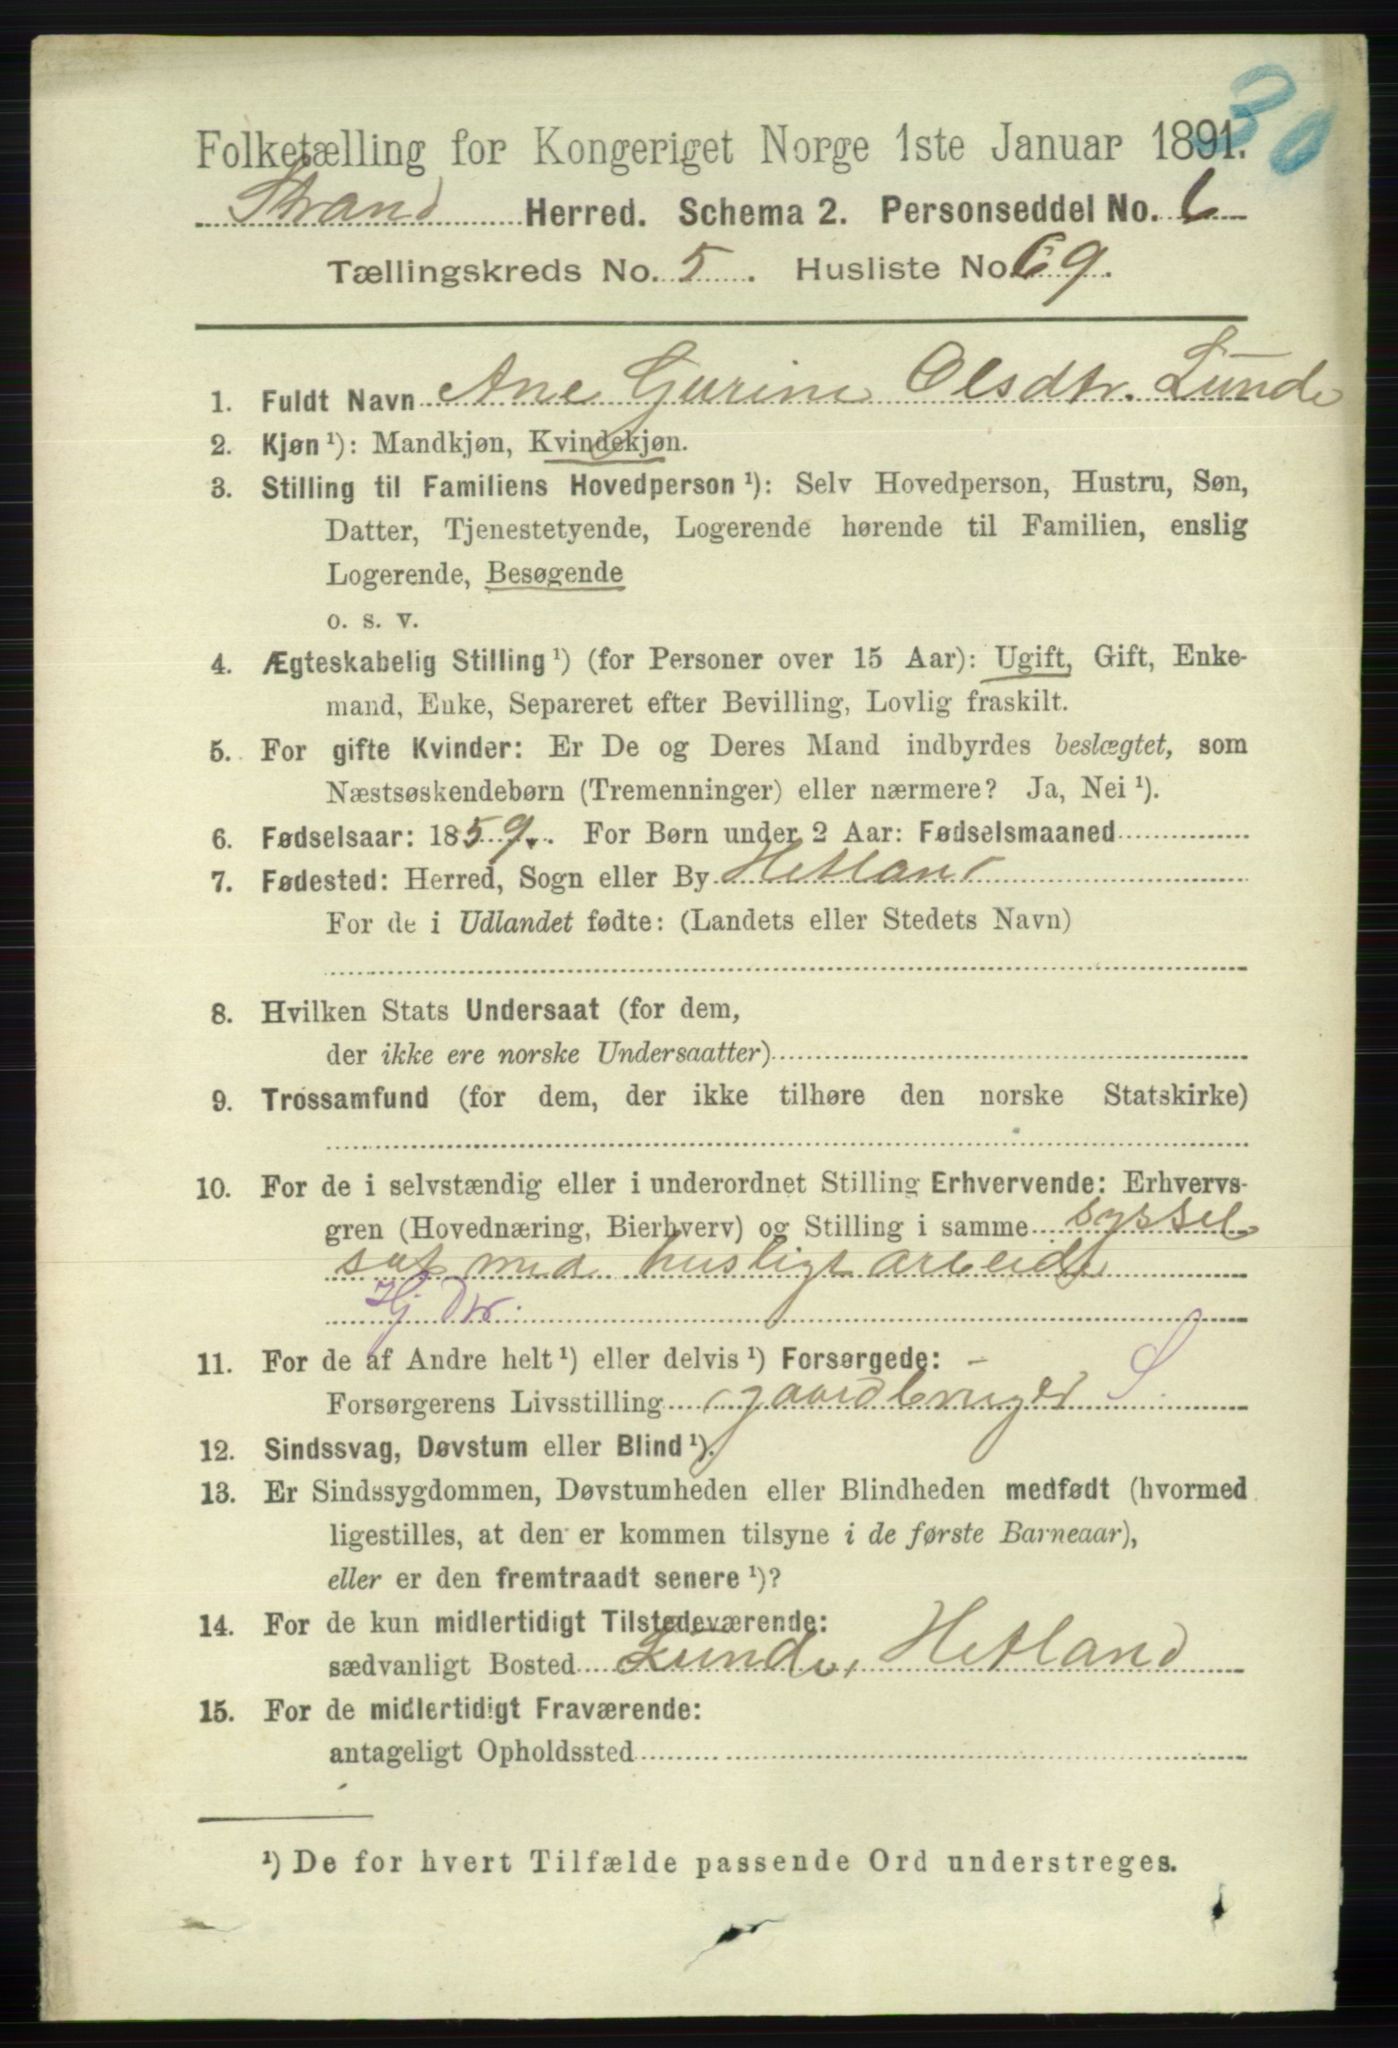 30
Folketælling for Kongeriget Norge 1ste Januar 1891.
Strand Herred. Schema 2. Personseddel No. 6
Tællingskreds No. 5. Husliste No. 69.
1. Fuldt Navn Ane Gurine Olsdtr. Lunde
2. Kjøn ¹): Mandkjøn, Kvindekjøn.
3. Stilling til Familiens Hovedperson ¹): Selv Hovedperson, Hustru, Søn,
Datter, Tjenestetyende, Logerende hørende til Familien, enslig
Logerende, Besøgende
o. s. v.
4. Ægteskabelig Stilling ¹) (for Personer over 15 Aar): Ugift, Gift, Enke-
mand, Enke, Separeret efter Bevilling, Lovlig fraskilt.
5. For gifte Kvinder: Er De og Deres Mand indbyrdes beslægtet, som
Næstsøskendebørn (Tremenninger) eller nærmere? Ja, Nei ¹).
6. Fødselsaar: 1859. For Børn under 2 Aar: Fødselsmaaned
7. Fødested: Herred, Sogn eller By Hetland
For de i Udlandet fødte: (Landets eller Stedets Navn)
8. Hvilken Stats Undersaat (for dem,
der ikke ere norske Undersaatter)
9. Trossamfund (for dem, der ikke tilhøre den norske Statskirke)
10. For de i selvstændig eller i underordnet Stilling Erhvervende: Erhvervs-
gren (Hovednæring, Bierhverv) og Stilling i samme syssel
sat med husligt arbeide
Hj. Dtr.
11. For de af Andre helt ¹) eller delvis ¹) Forsørgede: -
Forsørgerens Livsstilling gaardbruger S.
12. Sindssvag, Døvstum eller Blind ¹).
13. Er Sindssygdommen, Døvstumheden eller Blindheden medfødt (hvormed
ligestilles, at den er kommen tilsyne i de første Barneaar),
eller er den fremtraadt senere ¹)?
14. For de kun midlertidigt Tilstedeværende:
sædvanligt Bosted Lunde, Hetland
15. For de midlertidigt Fraværende:
antageligt Opholdssted
¹) De for hvert Tilfælde passende Ord understreges.